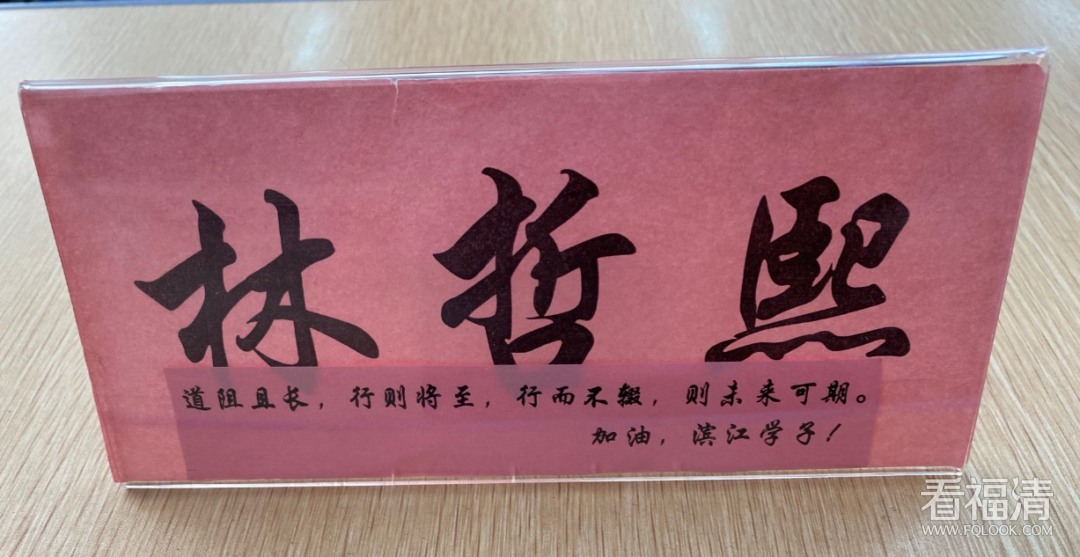 林哲熙
道阻且长，行则将至，行而不辍，则未来可期。
加油，滨江学子！
看福清
WWW.FQLOOK.COM